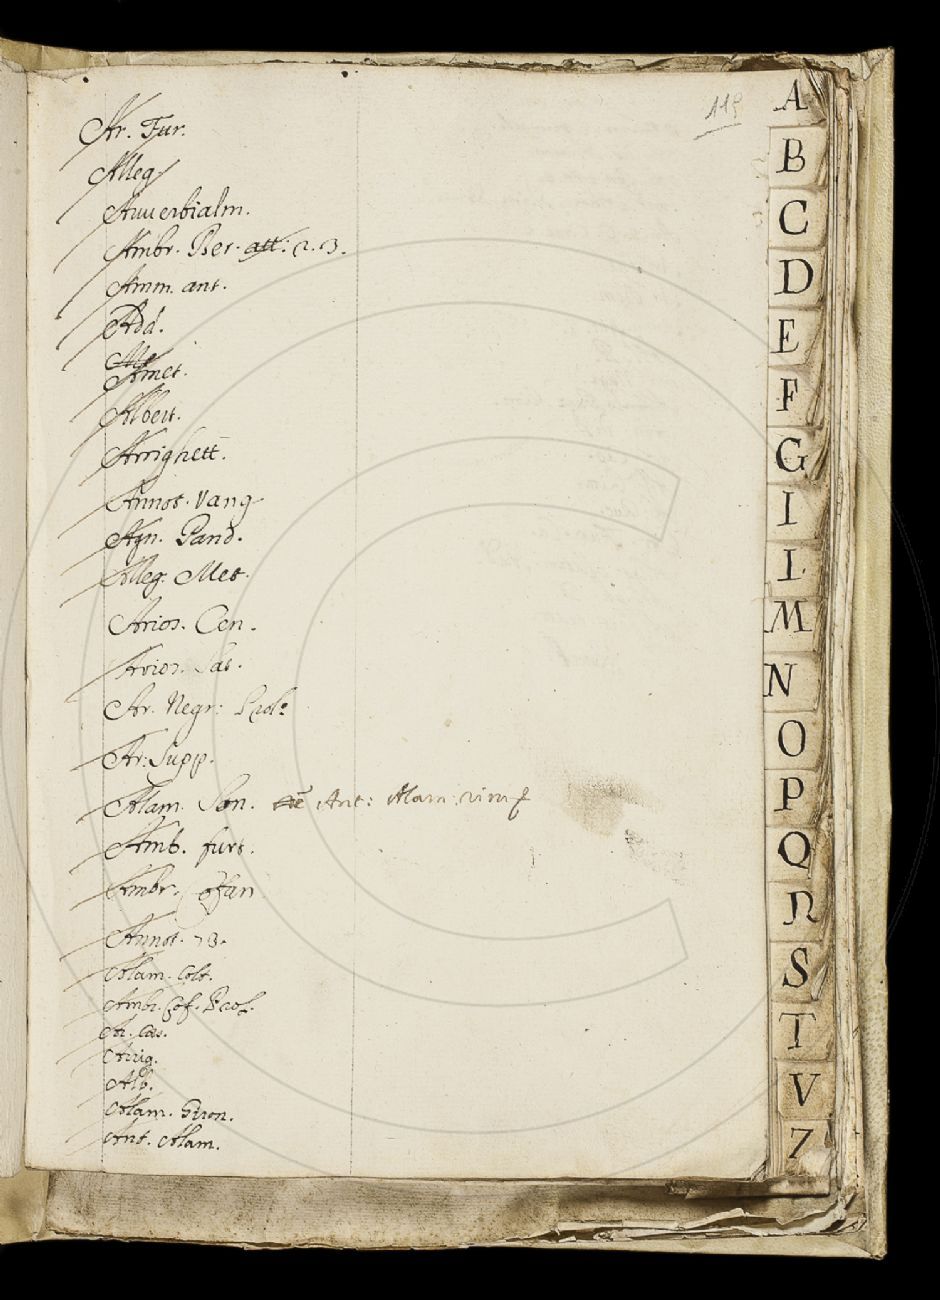 118
Ar. Fur.
Alleg
Auuerbialm.
Ambr. Ber. att: 2. 3.
Amm. ant.
Add.
Ale
Amet.
Albert.
Arrighett.
Annot. Vang
Agn. Pand.
Alleg. Met.
Arios. Cen.
Arios. Sat.
Ar. Negr: Prol:
Ar: Supp.
Alam. Son. Ant: Alam: rim
Amb. furt.
Ambr. Cofan
Annot. 73.
Alam. Colt.
Ambr. Cof. Prol.
Ar. Cas.
Arrig.
Alb.
Alam. Giron.
Ant. Alam.
A
B
C
D
E
F
G
I
L
M
N
O
P
Q
R
S
T
V
Z